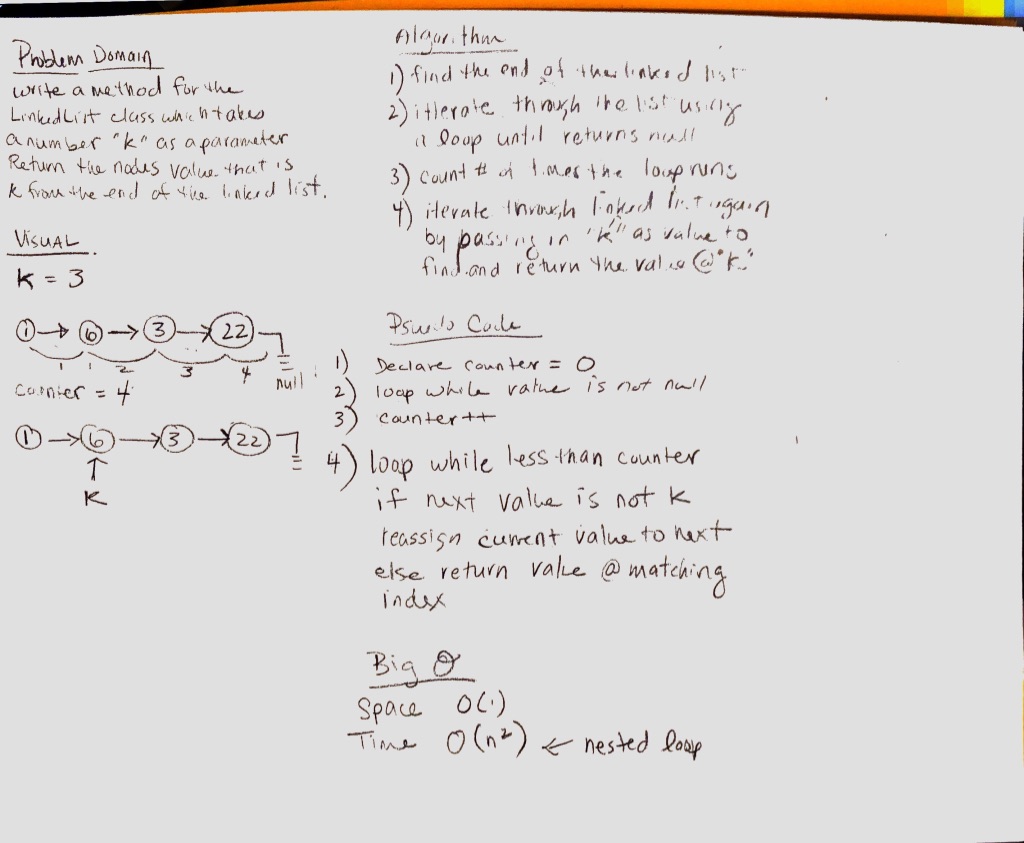 Problem Domain
write a method for the
LinkedList class which takes
a number "k" as a parameter
Return the nodes value that is
k from the end of the linked list.
VISUAL
K = 3
1 → 6 → 3 → 22
1 2 3 4 null
counter = 4
1 → 6 → 3 → 22
K
Algorithm
1) find the end of the linked list
2) itterate through the list using
a loop until returns null
3) count # of times the loop runs
4) iterate through linked list again
by passing in "k" as value to
find and return the value @ "k"
Psuedo Code
1) Declare counter = 0
2) loop while value is not null
3) counter++
4) loop while less than counter
if next value is not K
reassign current value to next
else return value @ matching
index
Big O
Space O(1)
Time O(n²) ← nested loop